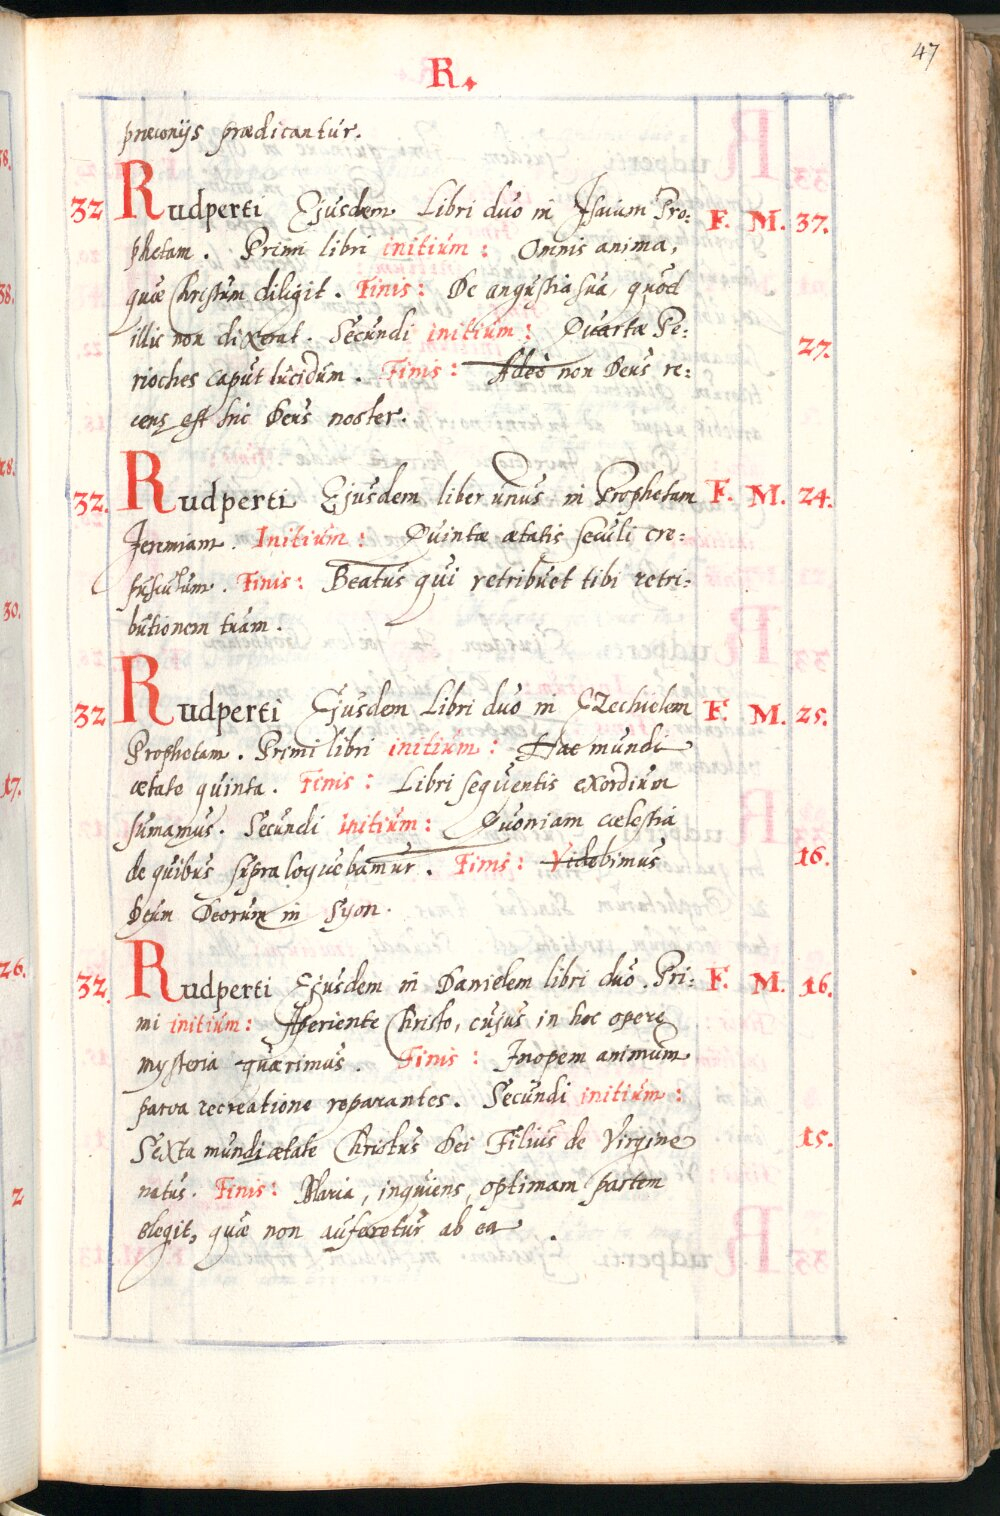 47
R.
præconijs prædicantur.
32 Rudperti Ejusdem Libri duo in Isaium Pro: F. M. 37.
phetam. Primi libri initium: Omnis anima,
quæ Christum diligit. Finis: De angustia sua, quod
illis non dixerat. Secundi initium: Quartæ Pe: 27.
rioches caput lucidum. Finis: Adeò non Deus re:
cens est hic Deus noster.
32. Rudperti Ejusdem liber unus in Prophetam F. M. 24.
Jeremiam. Initium: Quintæ ætatis seculi cre:
pusculum. Finis: Beatus qui retribuet tibi retri:
butionem tuam.
32 Rudperti Ejusdem Libri duo in Ezechielem F. M. 25.
Prophetam. Primi libri initium: Hac mundi
ætate quinta. Finis: Libri sequentis exordium
sumamus. Secundi initium: Quoniam cælestia
de quibus supra loquebamur. Finis: Videbimus 16.
Deum Deorum in Syon.
32. Rudperti Ejusdem in Danielem libri duo. Pri: F. M. 16.
mi initium: Aperiente Christo, cujus in hoc opere
mysteria quærimus. Finis: Inopem animum
parva recreatione reparantes. Secundi initium:
Sexta mundi ætate Christus Dei Filius de Virgine 15.
natus. Finis: Maria, inquiens, optimam partem
elegit, quæ non auferetus ab ea.
38.
38.
28.
30.
17.
26.
2